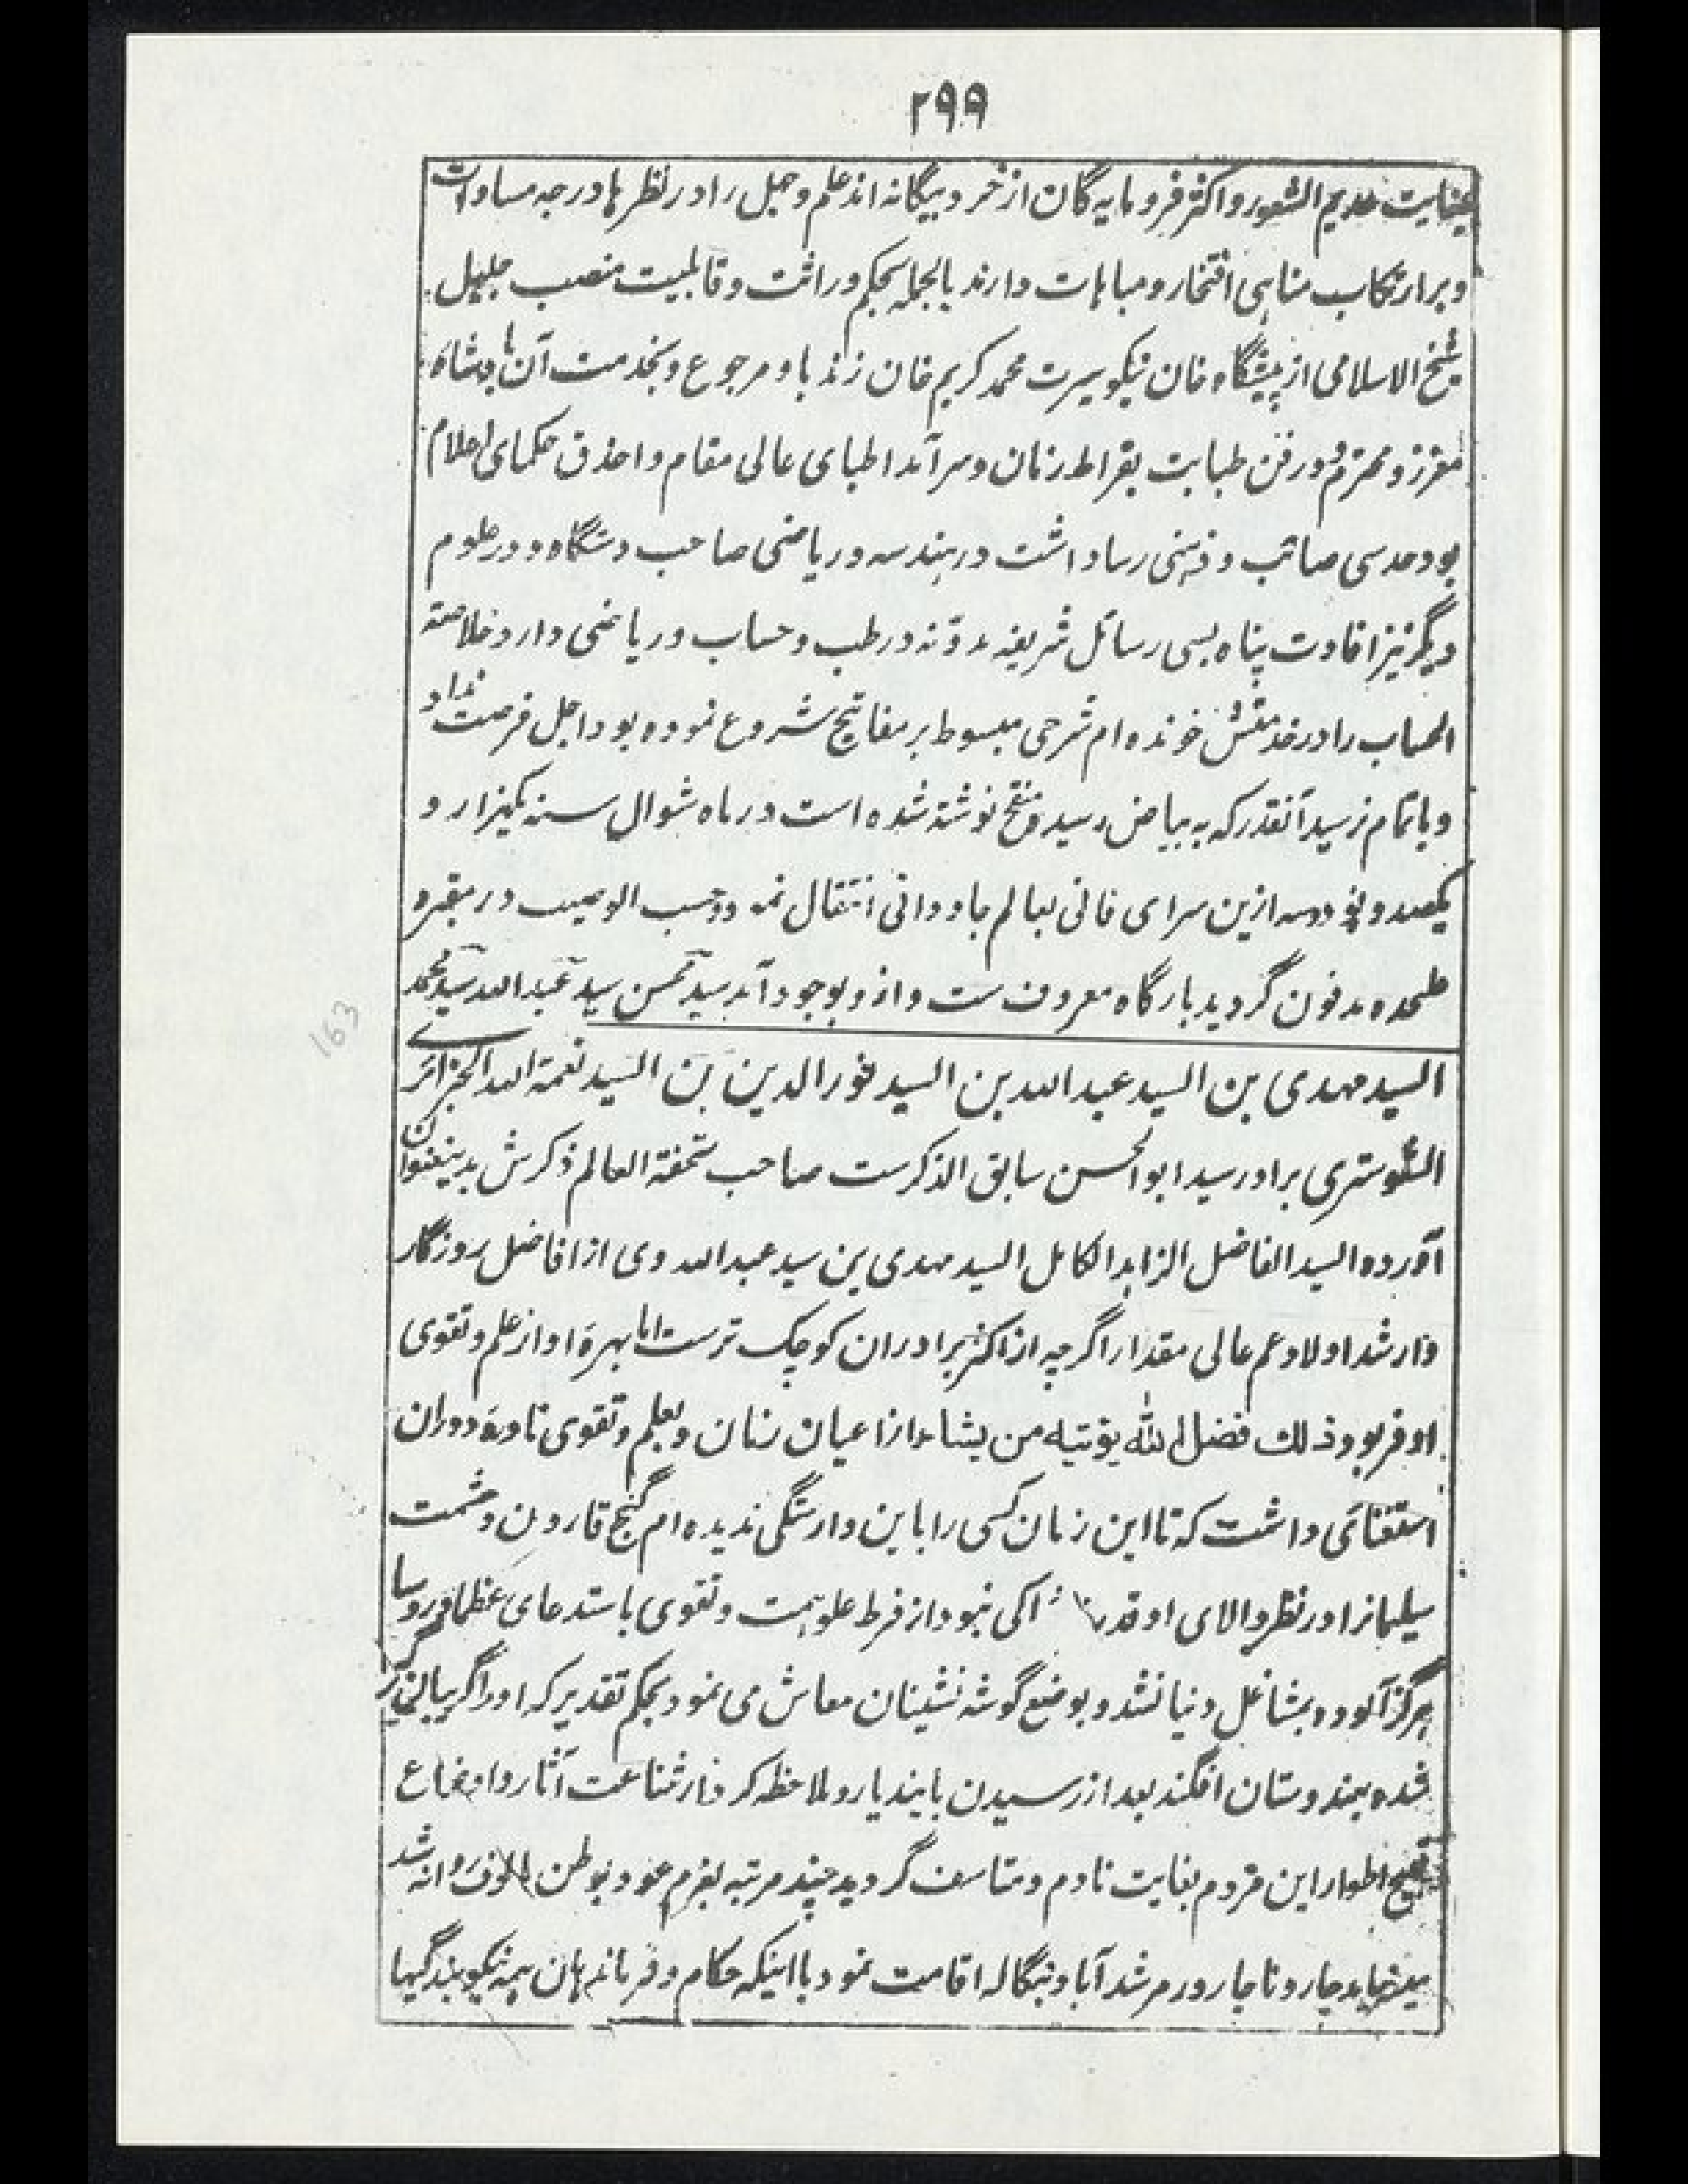 ۲۹۹
بغایت عدیم الشعور و اکثر فرومایه گان از خرد بیگانه اند علم و جهل را در نظر ها درجه مساوات
و بر ارتکاب مناهی افتخار و مباهات دارند بالجمله بحکم وراثت و قابلیت منصب جلیل
شیخ الاسلامی از پیشگاه خان نیکو سیرت محمد کریم خان زند با و مرجوع و بخدمت آن پادشاه
معزز و محترم و در فن طبابت بقراط زمان و سر آمد اطبای عالی مقام و احذق حکمای اعلام
بود حدسی صائب و ذهنی رسا داشت در هندسه و ریاضی صاحب دستگاه و در علوم
دیگر نیز افادت پناه بسی رسائل شریفه مدونه در طب و حساب و ریاضی دارد خلاصة
الحساب را در خدمتش خونده ام شرحی مبسوط بر مفاتیح شروع نموده بود اجل فرصت نداد
و باتمام نرسید آنقدر که به بیاض رسید و منقح نوشته شده است در ماه شوال سنه یکهزار و
یکصد و نود و سه ازین سرای فانی بعالم جاودانی انتقال نمود و حسب الوصیت در مقبره
علیحده مدفون گردید بارگاه معروف ست و ازو بوجود آمد سید محسن سید عبد الله سید محمد
السید مهدی بن السید عبد الله بن السید نور الدین بن السید نعمة الله الجزائری
الشوستری برادر سید ابو الحسن سابق الذکرست صاحب تحفة العالم ذکرش بدینعنوان
آورده السید الفاضل الزاهد الکامل السید مهدی بن سید عبد الله وی از افاضل روزگار
و ارشد اولاد عم عالی مقدار اگر چه از اکثر برادران کوچک ترست اما بهرهٔ او از علم و تقوی
اوفر بود ذلك فضل الله یؤتیه من یشاء از اعیان زمان و بعلم و تقوی نادرهٔ دوران
استغنائی داشت که تا این زمان کسی را باین وارستگی ندیده ام گنج قارون و حشمت
سلیمان را در نظر والای او قدر خاکی نبود از فرط علو همت و تقوی باستدعای عظما و روسا
هرگز آلوده بمشاغل دنیا نشد و بوضع گوشه نشینان معاش می نمود بحکم تقدیر که او را گریبان گیر
شده بهندوستان افکند بعد از رسیدن باین دیار و ملاحظه کردن شناعت آثار و اوضاع
قبیح اطوار این مردم بغایت نادم و متاسف گردید چند مرتبه بعزم عود بوطن مالوف روانه شد
چار و ناچار در مرشد آباد بنگاله اقامت نمود با اینکه حکام و فرماندهان همه نیکو بندگیها